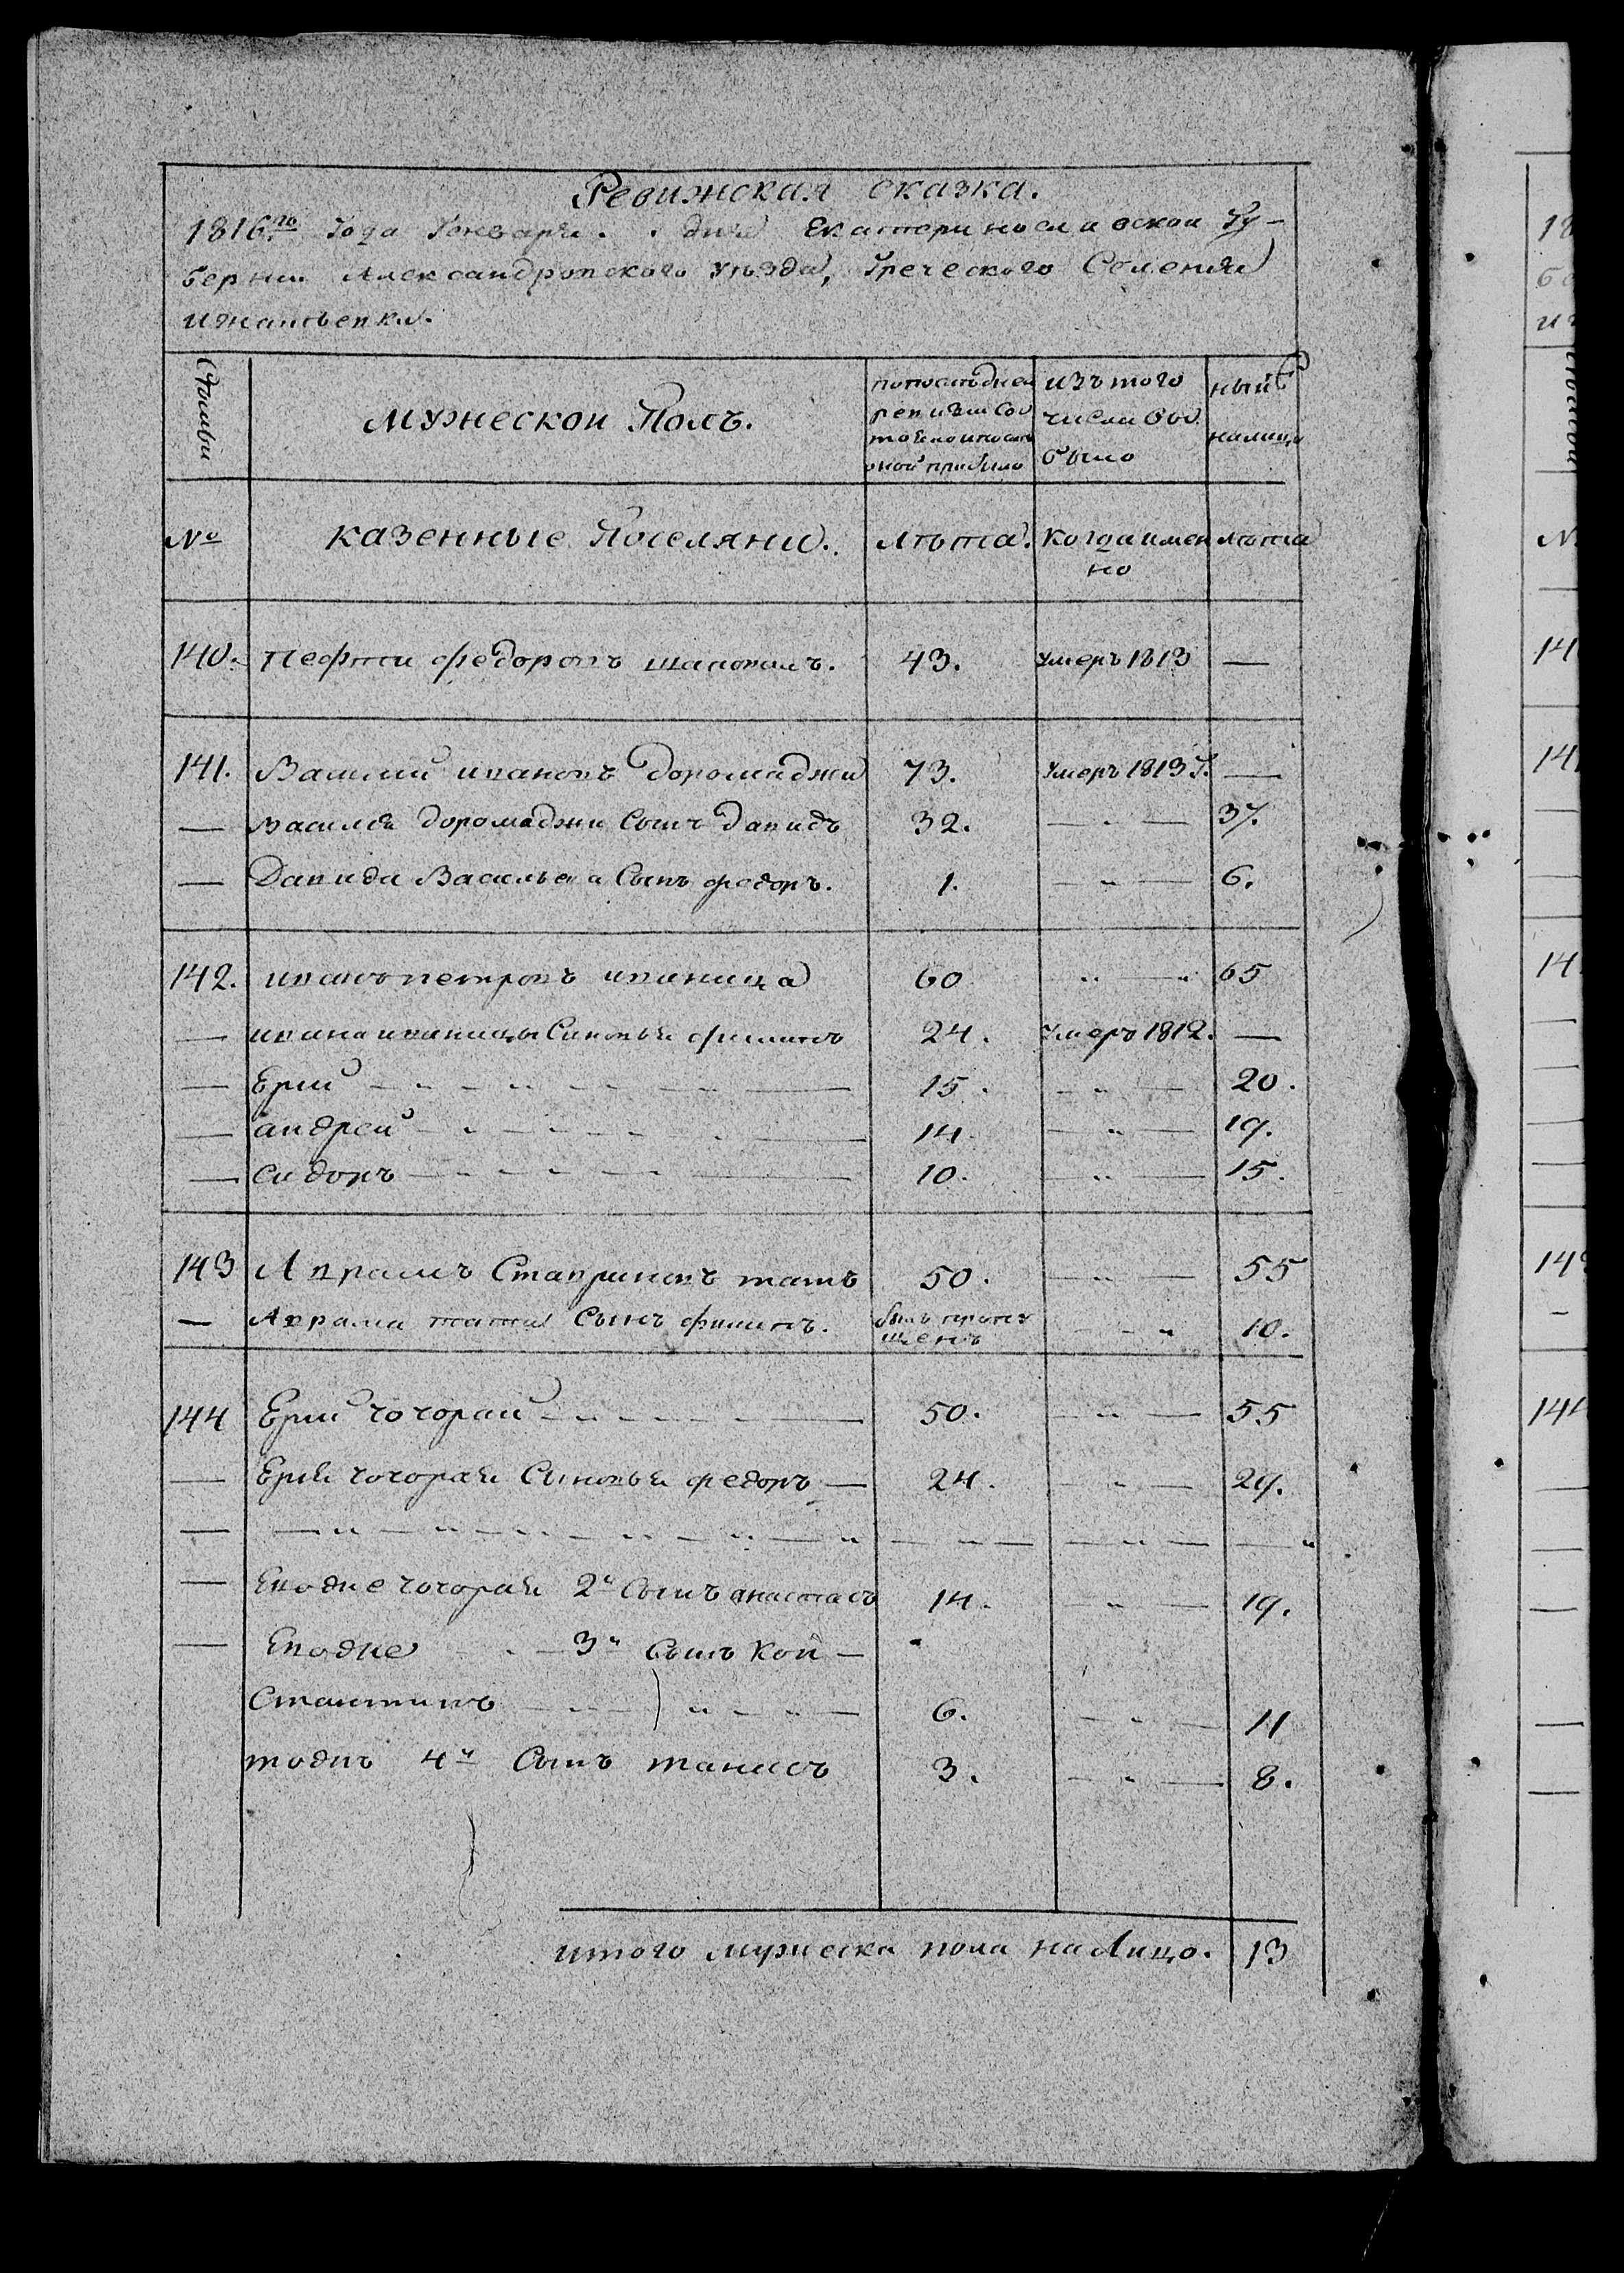 Ревижская сказка.
1816го Года Генваря . . дня Екатеринославской Гу-
бернии Александровского уѣзда, Греческого Селения
Игнатьевки.
Фамилии
Мужеской Полъ.
по последней ревизии Состояло и после оной прибыло
изъ того числа выбыло
нынѣ на лицо
№ казенные Поселяни. Лѣта. Когда имен Лѣта
но
140. федоровъ 43. умеръ 1813 —
141. Василий ивановъ доромаджи 73. умеръ 1813 г. —
— Василея доромаджи Сынъ давидъ 32. — „ — 37.
— Давида Васильева Сынъ федоръ. 1. — „ — 6.
142. иванъ петровъ иваница 60 „ — „ 65
— ивана иваницы Синовья филипъ 24. умеръ 1812. —
— Ерий — „ — „ — „ — 15. — „ — 20.
— андрей — „ — „ — „ — 14. — „ — 19.
— сидоръ — „ — „ — „ — 10. — „ — 15.
143 Аврамъ Ставриновъ татъ 50. — „ — 55
— Аврама тата Сынъ филипъ. былъ пропу
щенъ — „ 10.
144 Ерий чочорай — „ — „ — 50. — „ — 55
— Ерия чочорая Синовья федоръ — 24. — „ — 29.
— — „ — „ — „ — „ — „ — „ — „ — — „ — — „
— Еводне чочорая 2й Сынъ анастасъ 14. — „ — 19.
— Еводне — „ — 3й Сынъ Кон —
стантинъ — „ — „ — „ — 6. — „ — 11
4й Сынъ танасъ 3. — „ — 8.
итого мужеска пола на Лицо. 13
18
14
14
14
143
144